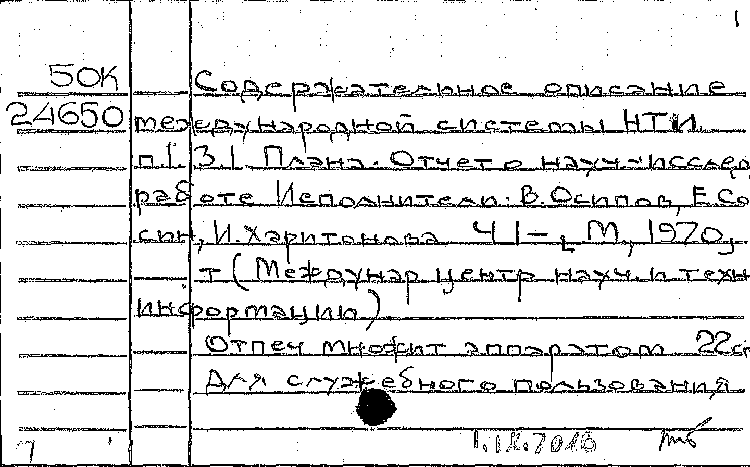 1
50К Содержательное описание
24650 международной системы НТИ.
п.1.3.1 Плана. Отчет о науч-исслед
работе Исполнители: В. Осипов, Е. Со
син, И. Харитонова Ч 1- М., 1970,
т (Междунар центр науч. и техн
информации)
Отпеч множит аппаратом 22с
Для служебного пользования